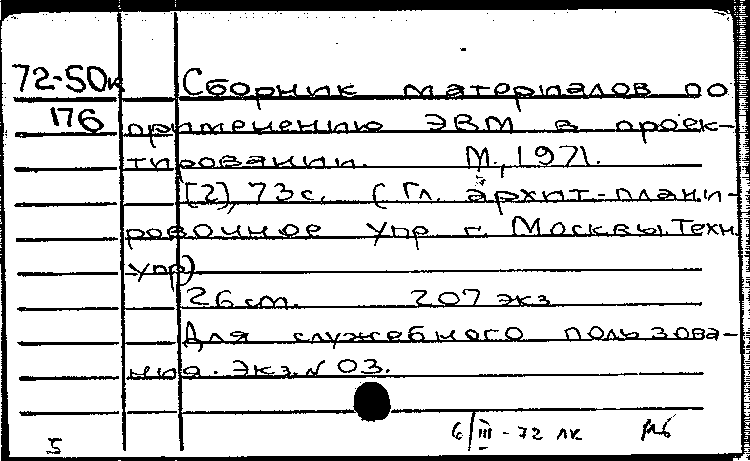 72-50к Сборник материалов по
176 применению ЭВМ в проек-
тировании. М., 1971.
[2], 73 с. (Гл. архит.-плани-
ровочное упр г. Москвы. Техн.
упр)
26 см. 207 экз
Для служебного пользова-
ния. Экз. N 03.
6/III - 72 лк
5